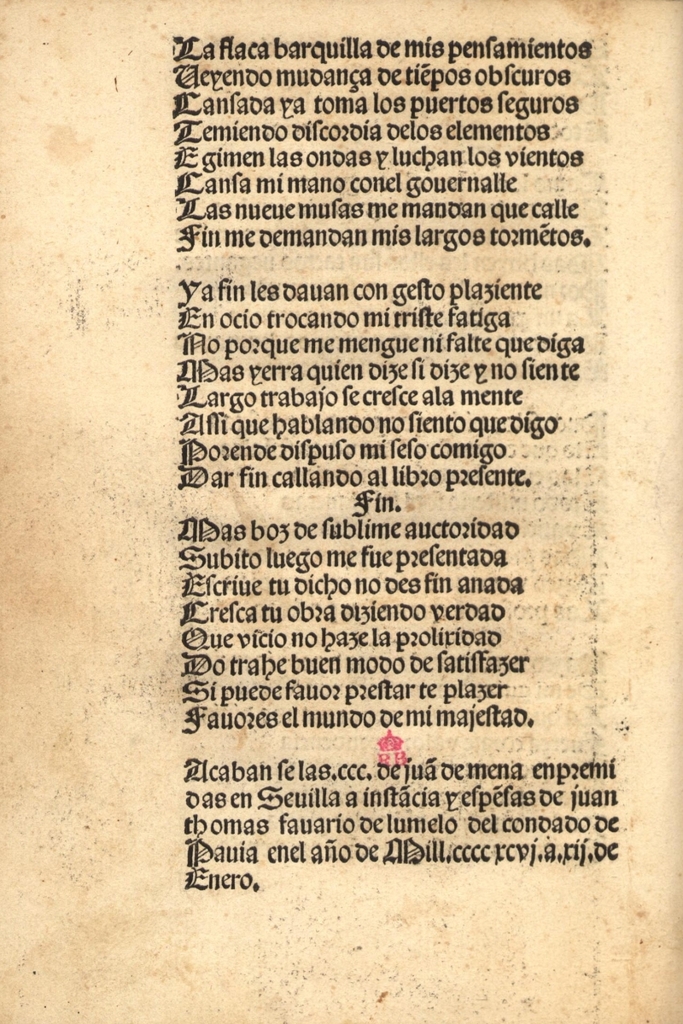 La flaca barquilla de mis pensamientos
Ueyendo mudança de tiẽpos obscuros
Cansada ya toma los puertos seguros
Temiendo discordia delos elementos
Egimen las ondas y luchan los vientos
Cansa mi mano conel gouernalle
Las nueue musas me mandan que calle
Fin me demandan mis largos tormẽtos.
Ya fin les dauan con gesto plaziente
En ocio trocando mi triste fatiga
No porque me mengue ni falte que diga
Mas yerra quien dize si dize y no siente
Largo trabajo se cresce ala mente
Assi que hablando no siento que digo
Porende dispuso mi seso comigo
Dar fin callando al libro presente.
Fin.
Mas boz de sublime auctoridad
Subito luego me fue presentada
Escriue tu dicho no des fin anada
Cresca tu obra diziendo verdad
Que vicio no haze la prolixidad
Do trahe buen modo de satisfazer
Si puede fauor prestar te plazer
Fauores el mundo de mi majestad.
RB
Acaban se las.ccc. de juã de mena enpremi
das en Seuilla a instãcia y espẽsas de juan
thomas fauario de lumelo del condado de
Pauia enel año de Mill.cccc xcvj.a.xij.de
Enero.